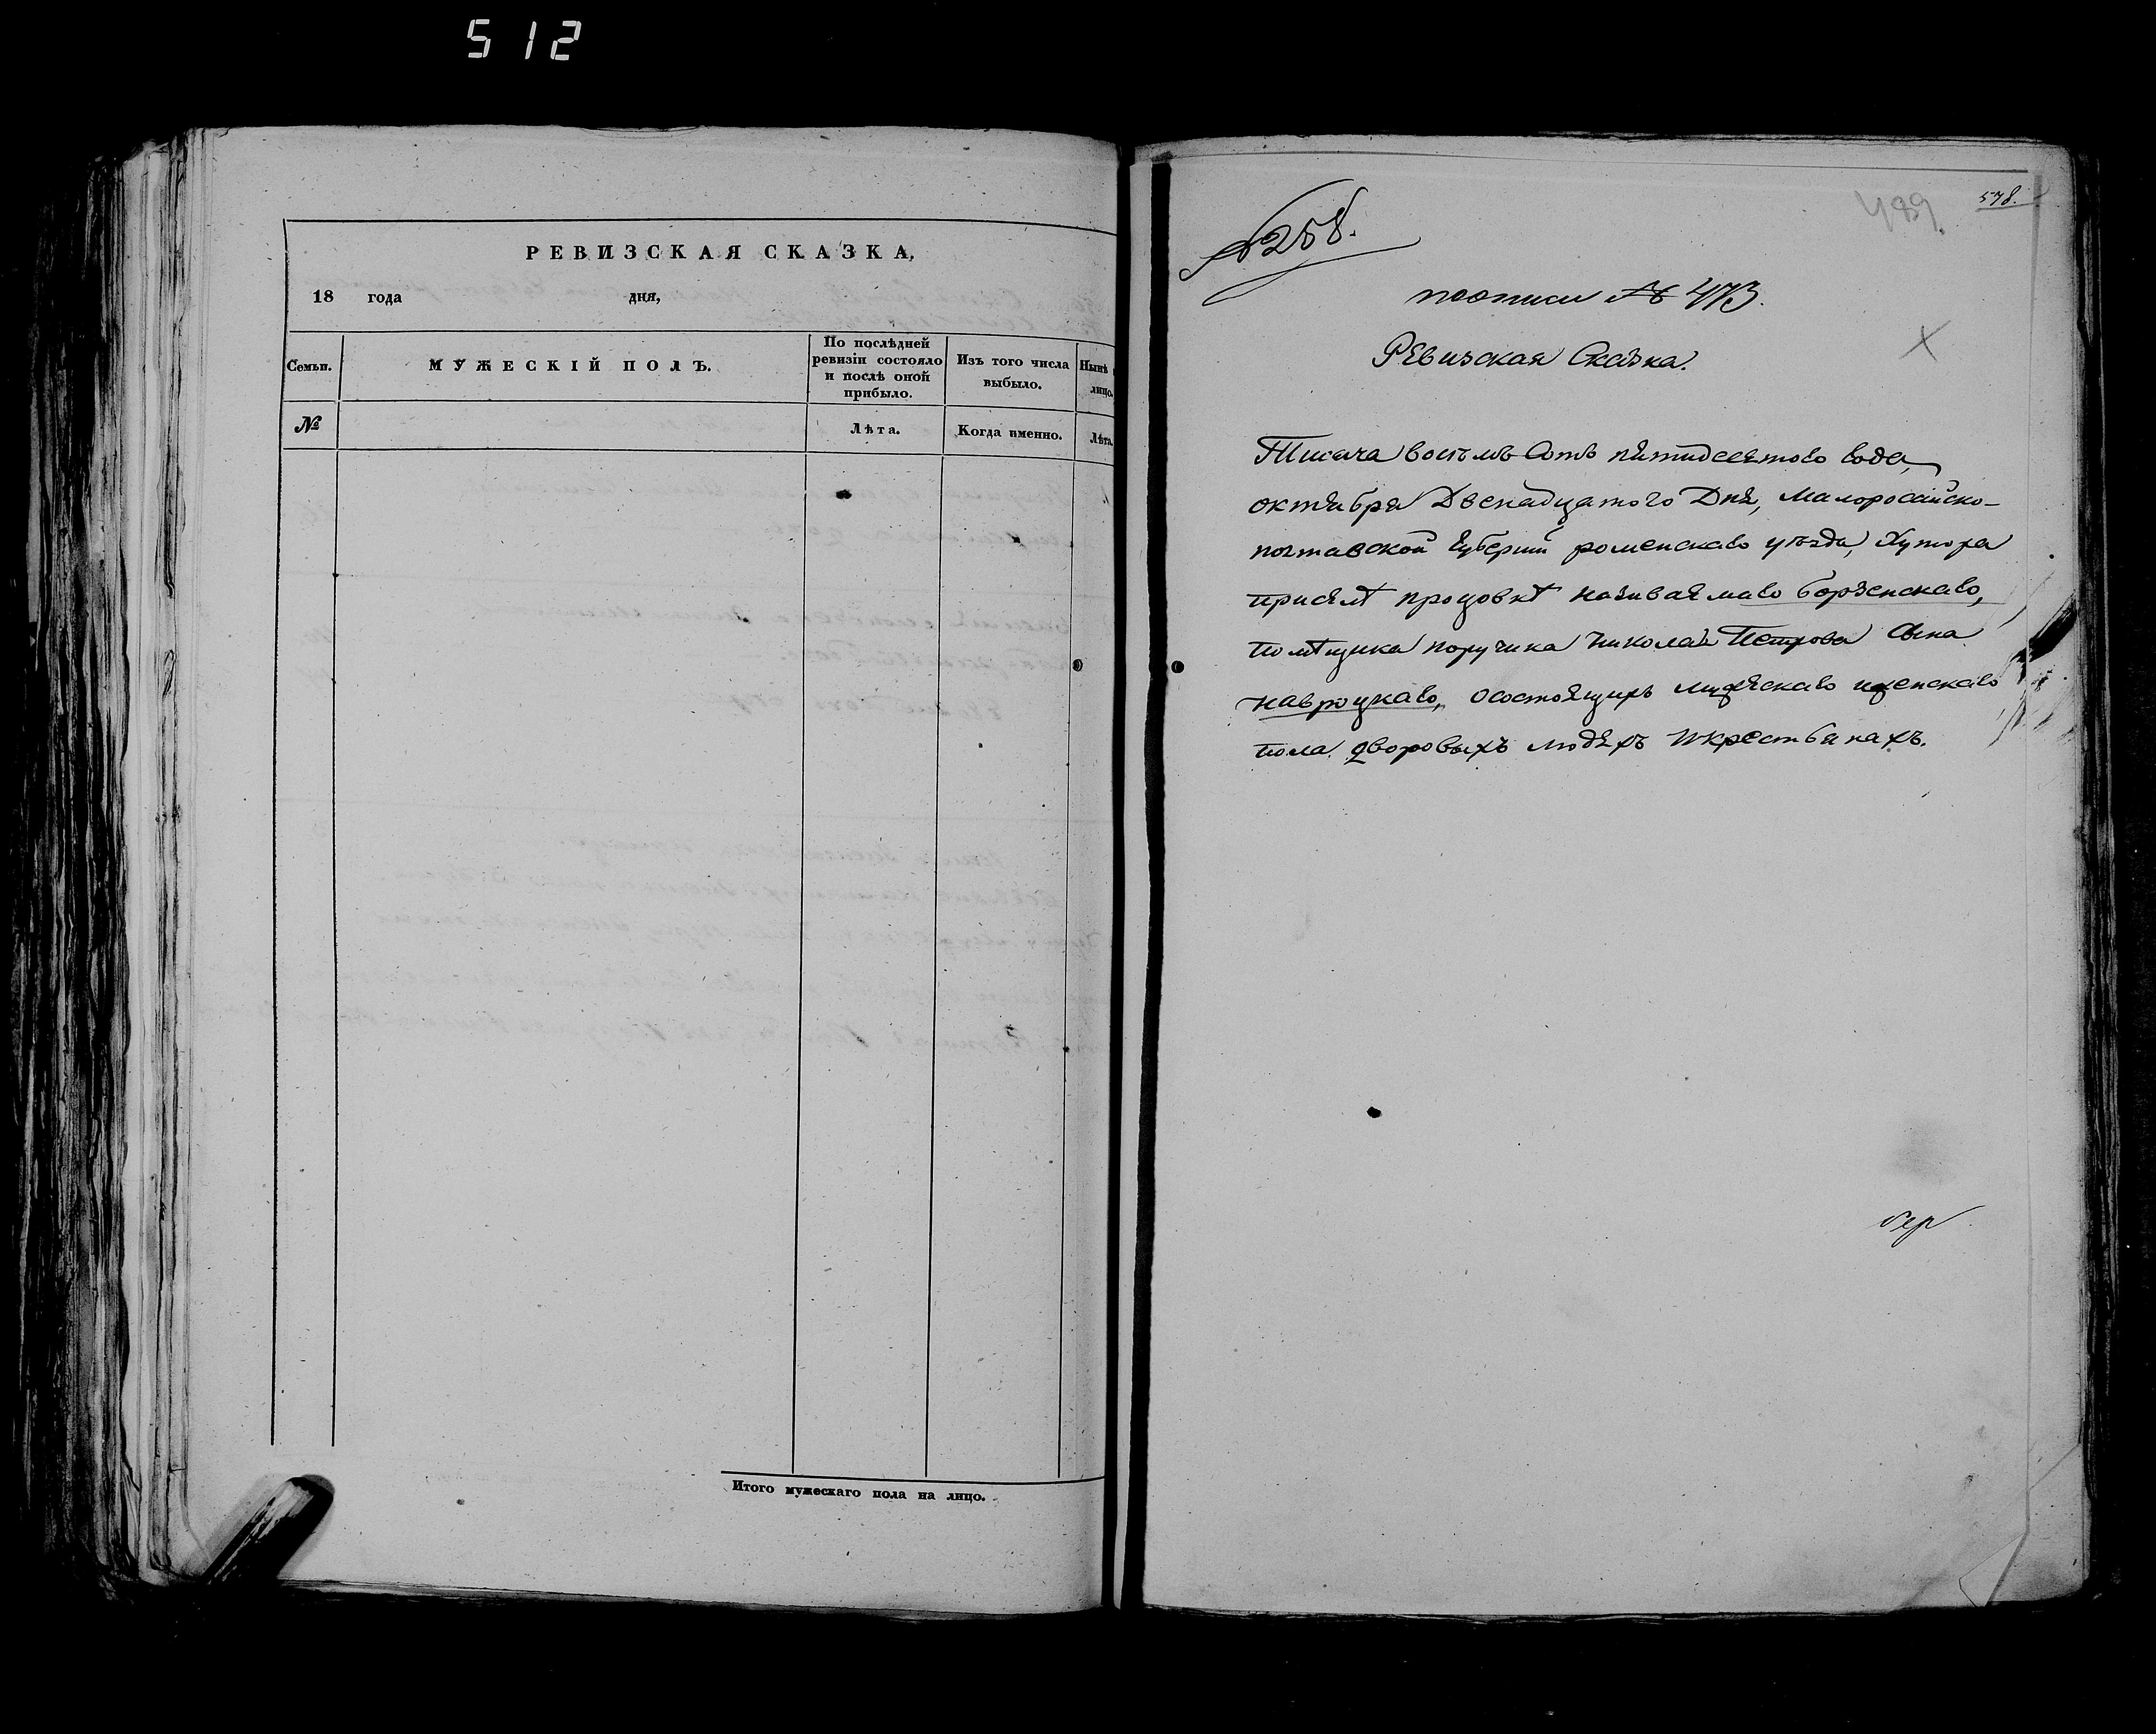 512
РЕВИЗСКАЯ СКАЗКА,
18 года дня,
Семьи.
МУЖЕСКІЙ ПОЛЪ.
По послѣдней ревизіи состояло и послѣ оной прибыло.
Изъ того числа выбыло.
Нынѣ лицо.
№
Лѣта.
Когда именно.
Лѣта.
Итого мужескаго пола на лицо.
578.
489.
№ 258.
поописи № 473.
Ревизская Сказка.
Тисяча восъмъ Сотъ пятидесятово года,
октября Двенадцатого Дня, Малоросийско-
полтавской губерний роменскаво уъзда, Хутора
присѣлѣ процовкѣ називаямаво борзенскаво,
помѣщика поручика николая Петрова Сына
навроцкаво, осостоящихъ мужескаво иженскаво
пола дворовыхъ людяхъ икрестьянахъ.